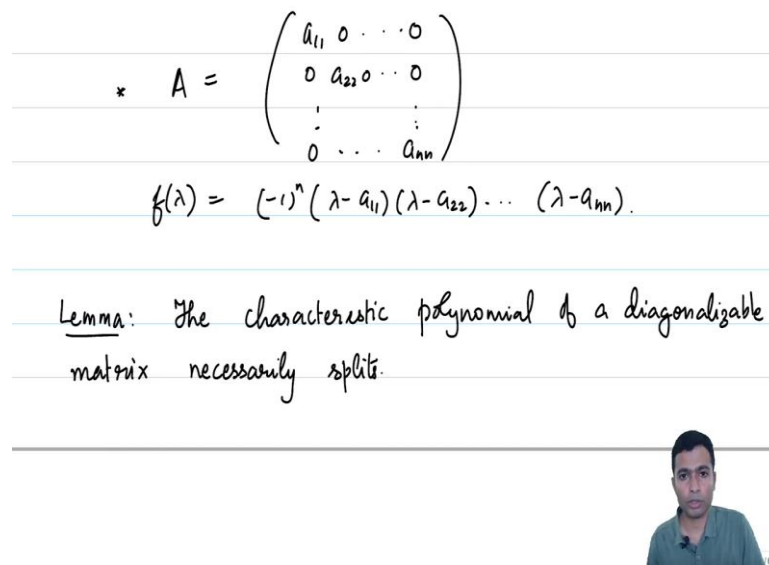 * A = ( a₁₁ 0 · · · 0
0 a₂₂ 0 · · 0
⋮ ⋮
0 · · · aₙₙ )
f(λ) = (-1)ⁿ (λ - a₁₁) (λ - a₂₂) · · · (λ - aₙₙ).
Lemma: The characteristic polynomial of a diagonalizable
matrix necessarily splits.